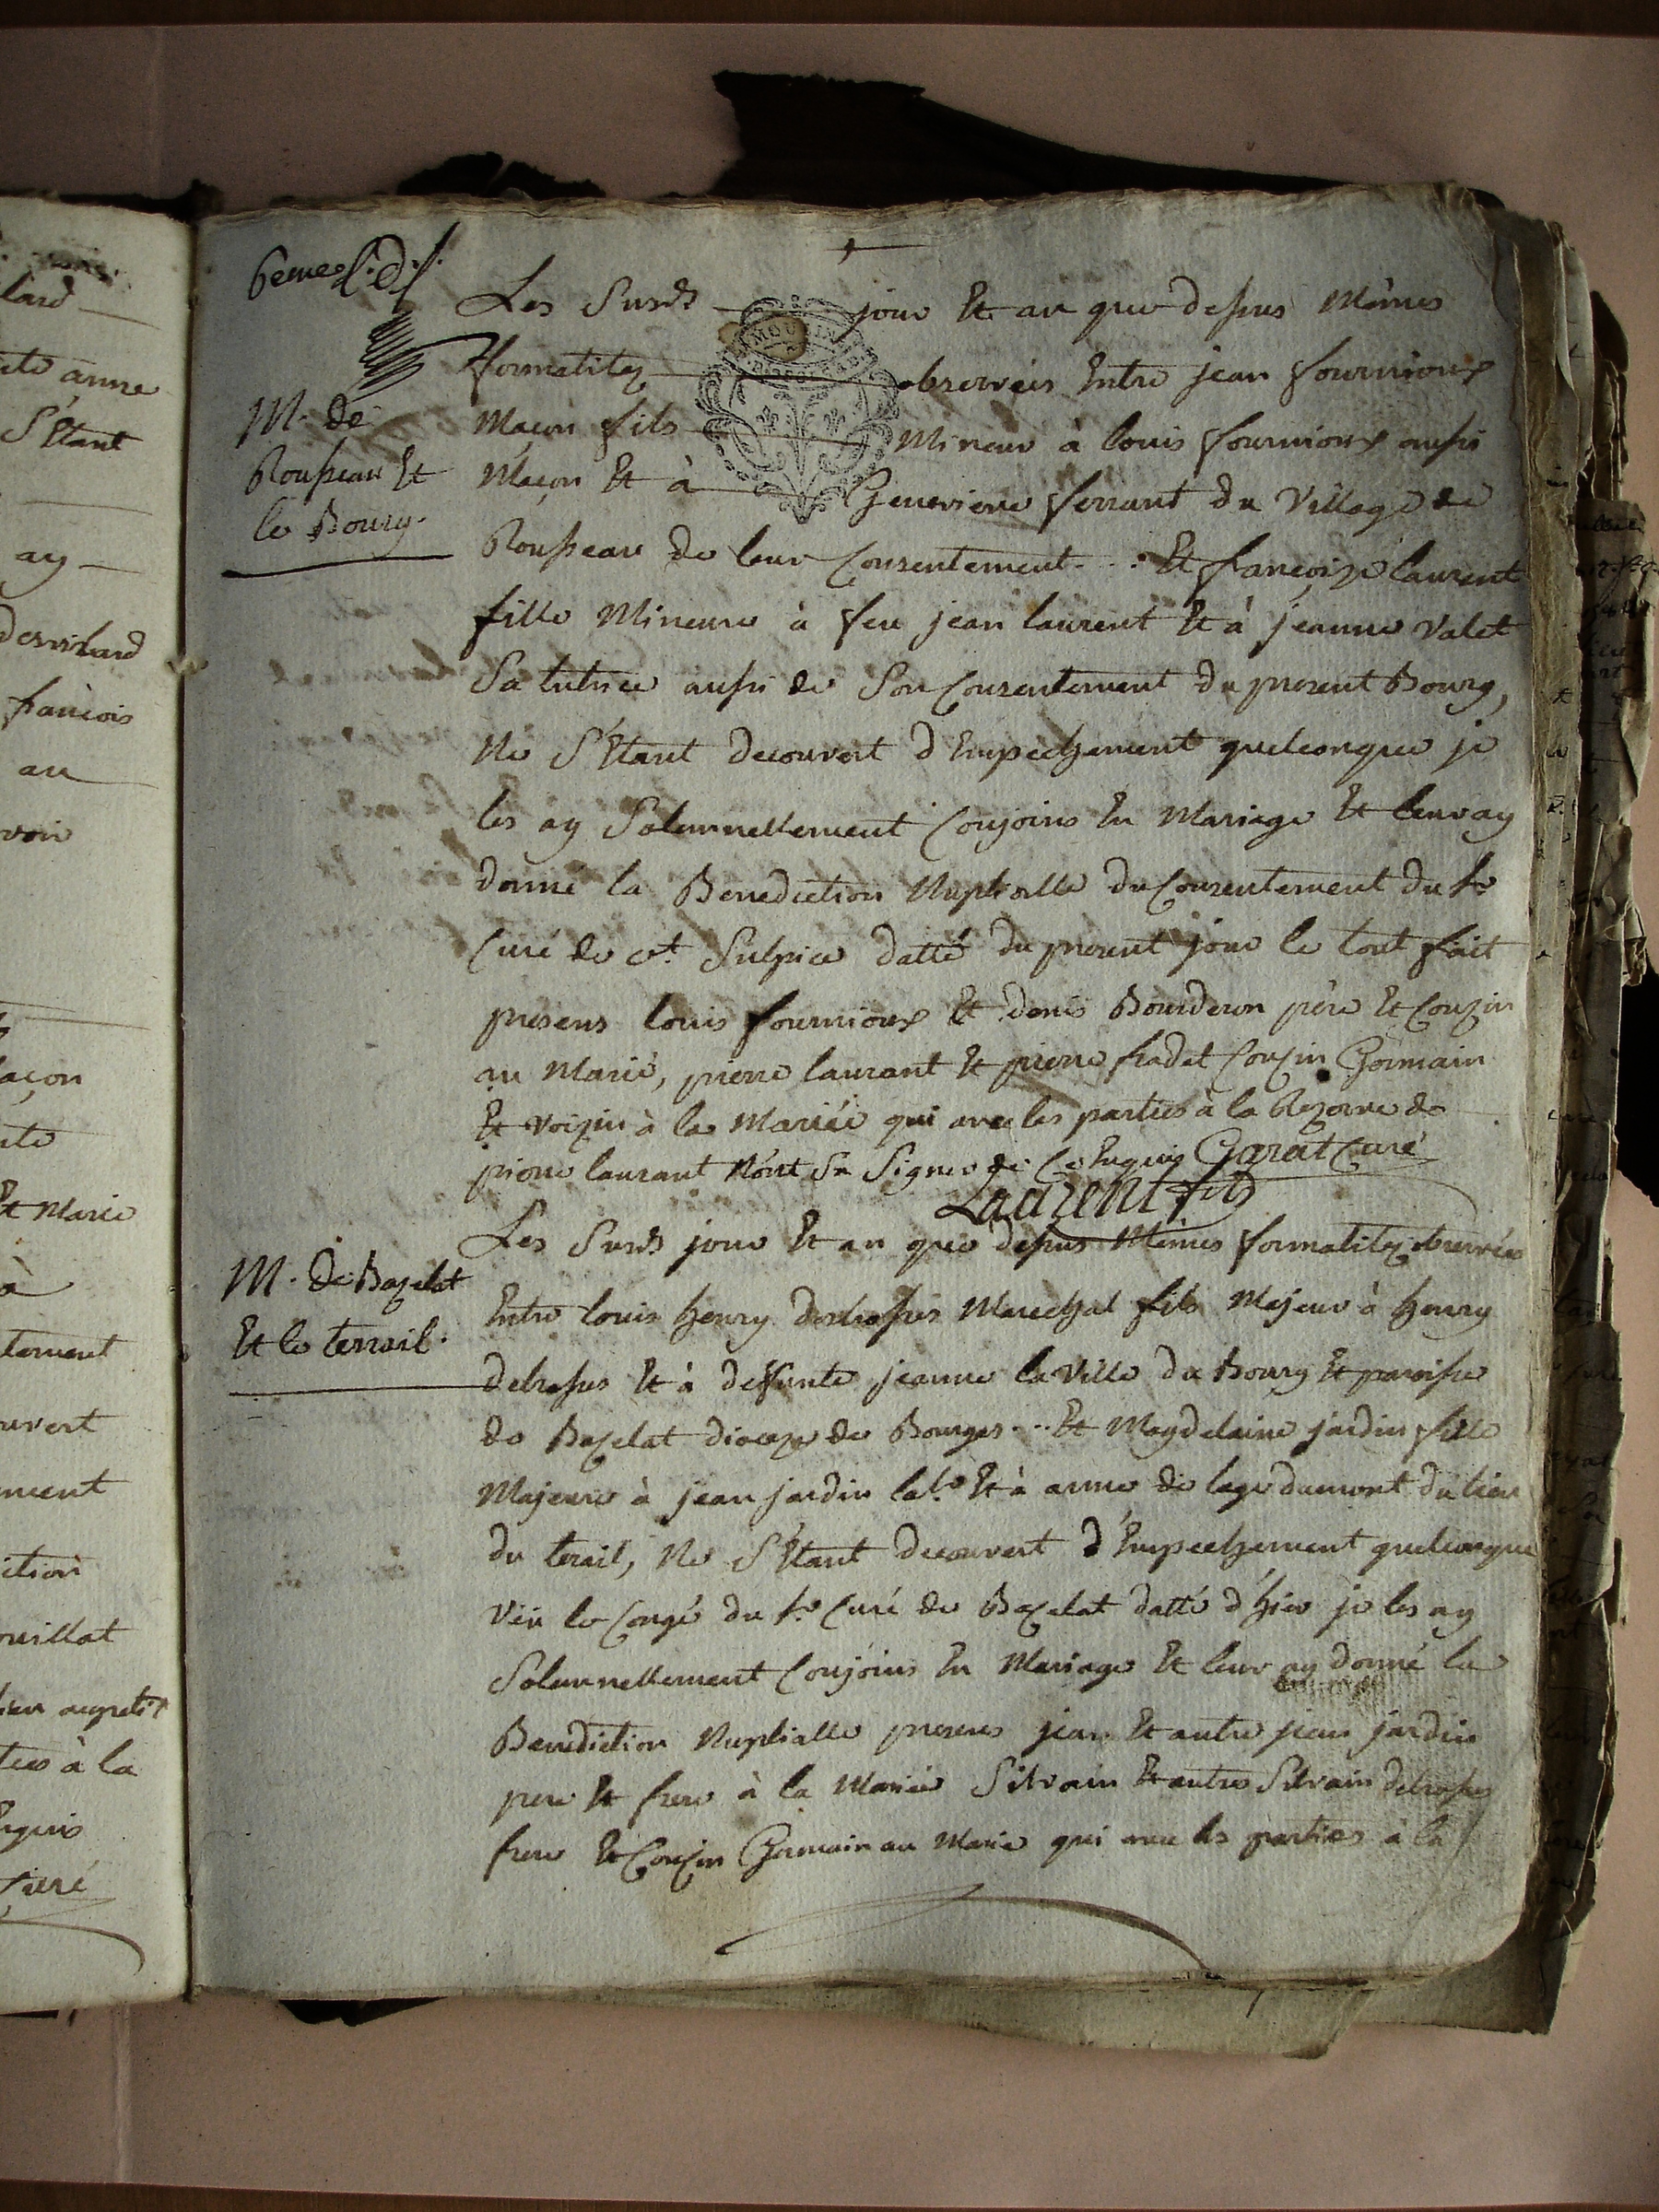 6eme
Les Susds jour Et an que dessus Mêmes
formalitez observées Entre jean fournioux
M. de
Maçon fils Mineur à louis fournioux aussi
Rousseau Et
Maçon Et à Genevieve ferrant du Village de
le Bourg.
Rousseau de leur Consentement... Et françoize laurent
fille Mineure à feu jean laurent Et à jeanne Valet
Sa tutrice aussi de Son Consentement du present Bourg,
Ne S'Etant decouvert d'Empechement quelconque je
les ay Solennellement Conjoins En Mariage Et leur ay
donné la Benediction Nuptialle du Consentement du Sr
Curé de St. Sulpice datté du present jour le tout fait
presens louis fournioux Et denis Bourderon père Et Couzin
au Marié, pierre laurant Et pierre fradet Couzin Germain
Et Voizin à la Mariée qui avec les parties à la Rezerve de
pierre laurant N'ont Su Signer de Ce Enquis Garat Curé
Laurent fils
Les Susds jour Et an que dessus Mêmes formalitez observées
M. de Bazelat
Entre louis henry Marechal fils Majeur à henry
Et le terrail.
Et à deffunte jeanne la Ville du Bourg Et paroisse
de Bazelat dioceze de Bourges... Et Magdelaine jardin fille
Majeure à jean jardin labr Et à anne de lage dumont du lieu
du terail, Ne S'Etant decouvert d'Empechement quelconque
Veu le Congé du Sr Curé de Bazelat datté d'hier je les ay
Solennellement Conjoins En Mariage Et leur ay donné la
Benediction Nuptialle presens jean Et autre jean jardin
pere Et frere à la Mariée Silvain Et autre Silvain
frere Et Couzin Germain au Marié qui avec les parties à la
lard
anne
S'Etant
ay
françois
au
voir
Et Marie
à
ouvert
tes à la
Enquis
Curé